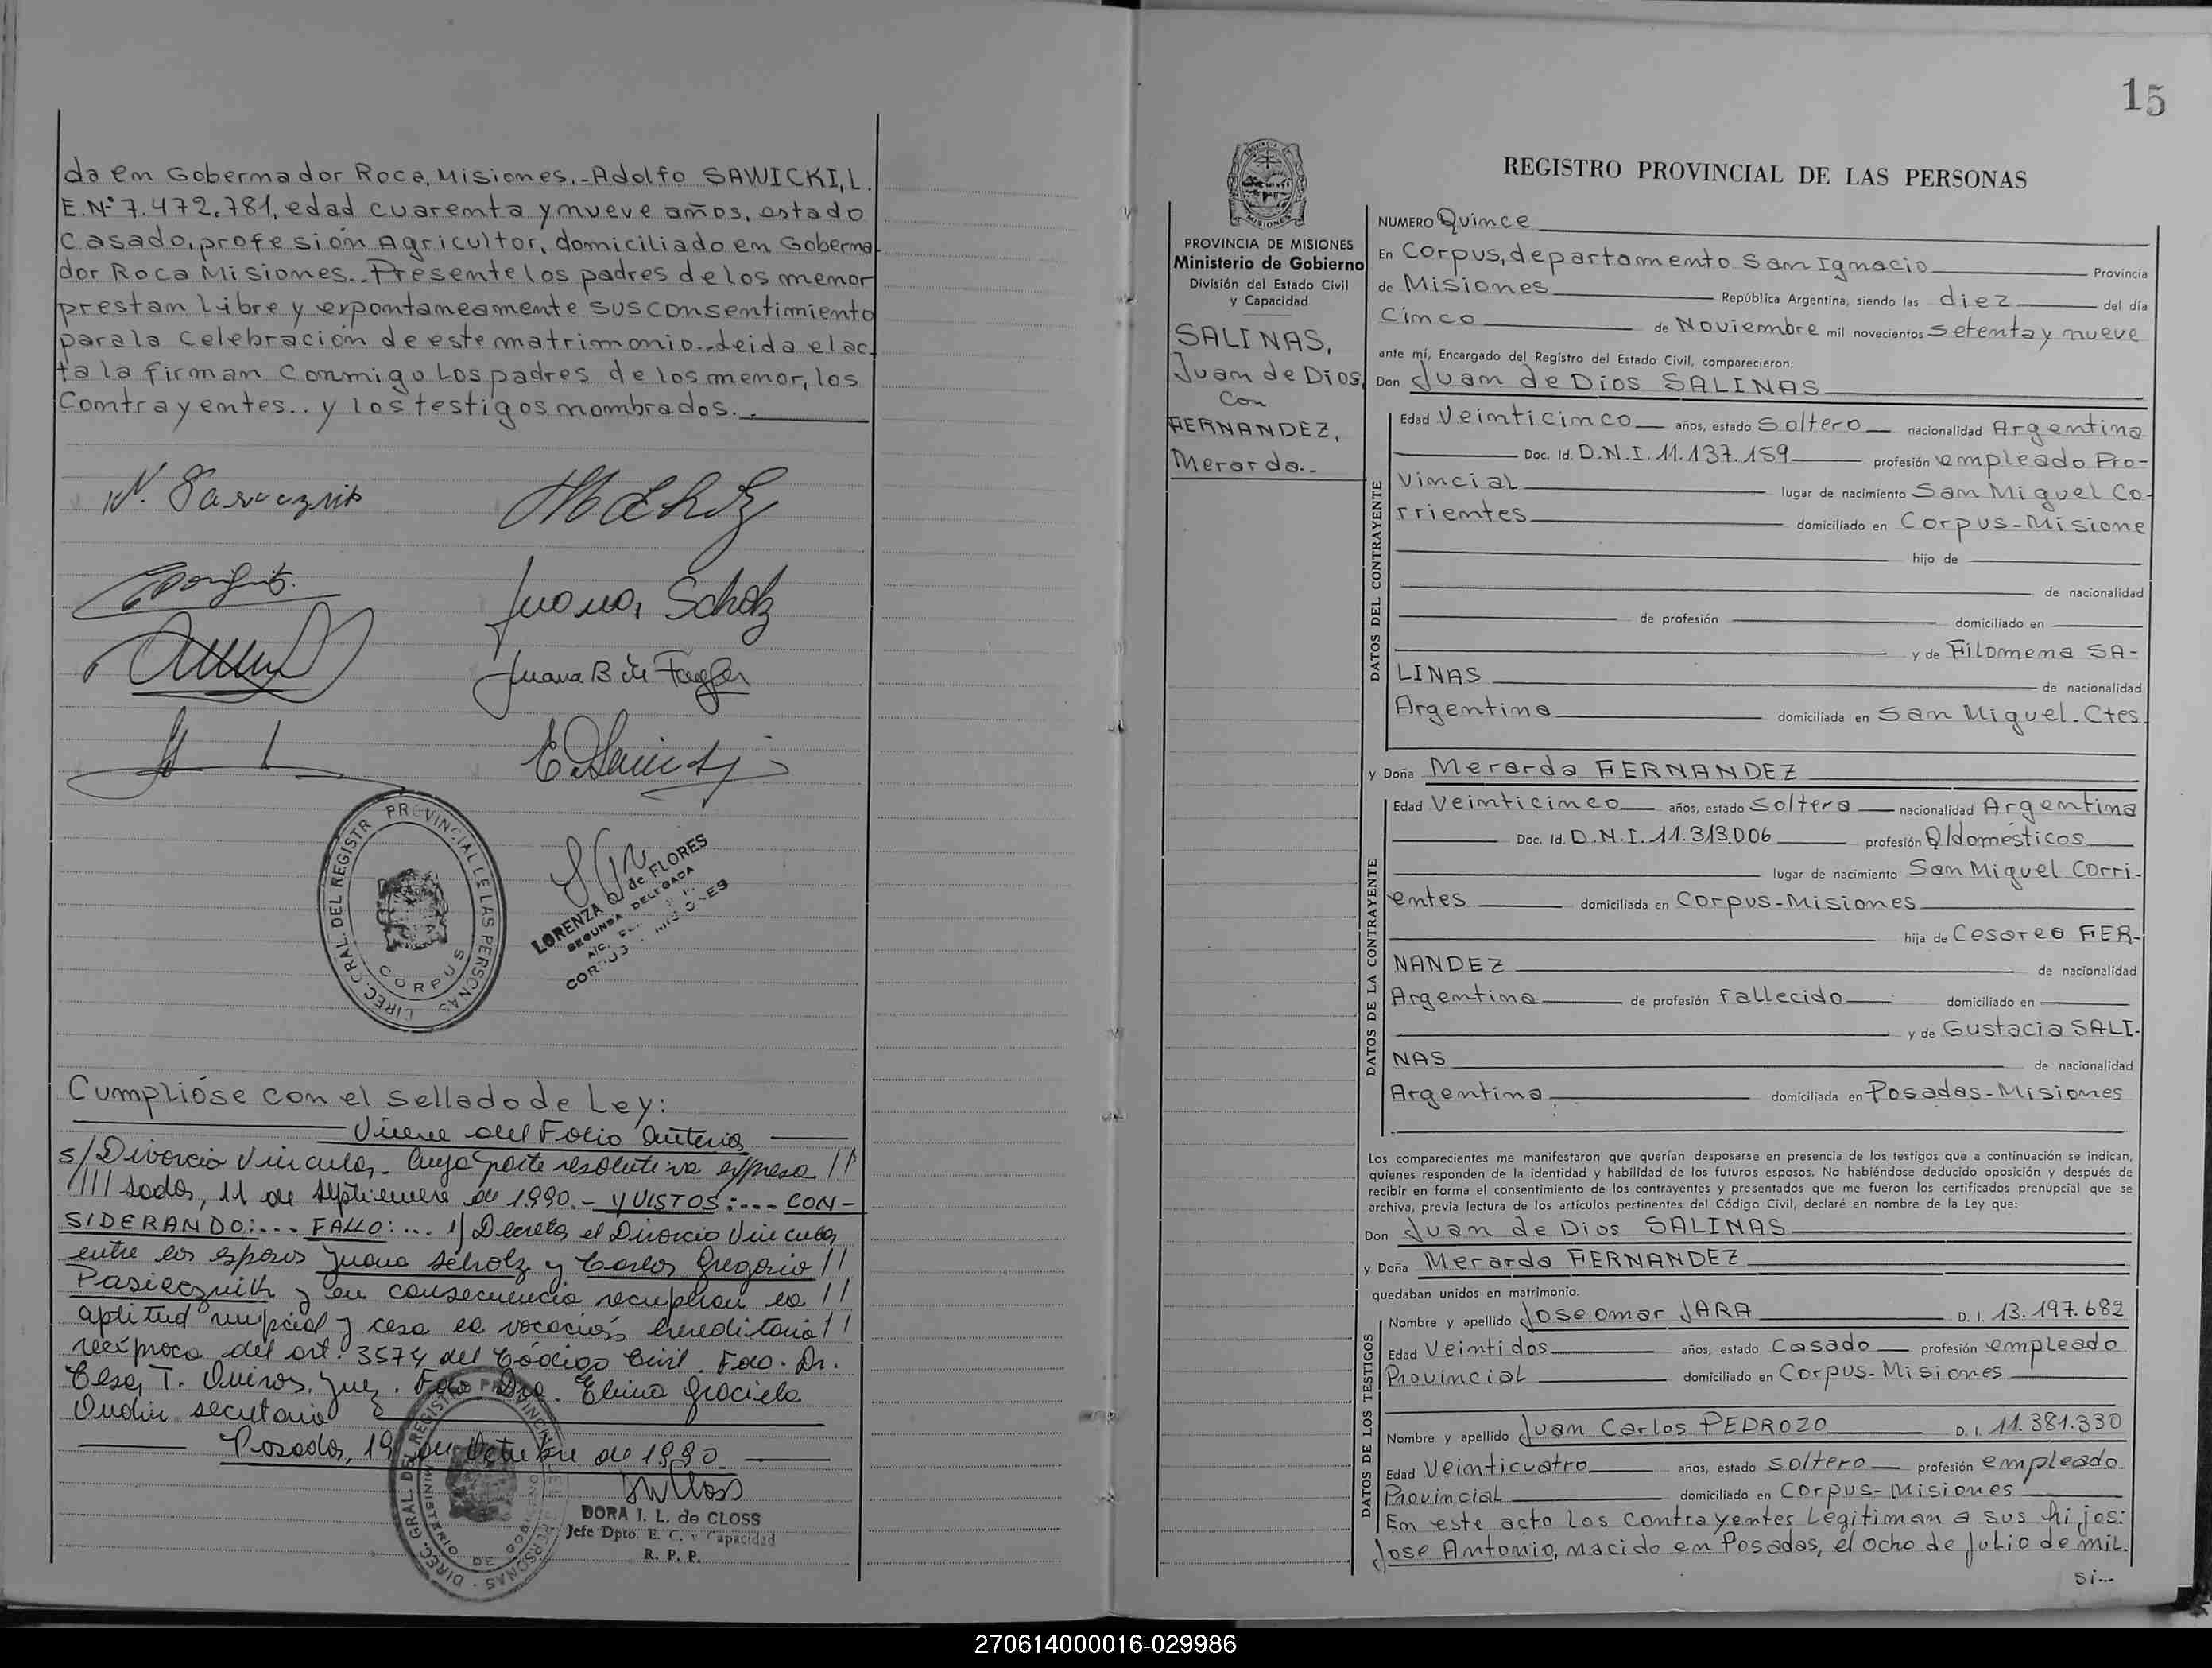 da en Gobernador Roca, Misiones.-Adolfo SAWICKI, L.
E.Nº 7.472.781, edad cuarenta y nueve años, estado
Casado, profesión Agricultor, domiciliado en Goberna-
dor Roca Misiones.-Presente los padres de los menor
prestan libre y expontaneamente sus consentimiento
para la celebración de este matrimonio.-Leida el ac-
ta la firman conmigo los padres de los menor, los
Contrayentes.. y los testigos nombrados.-
Juana Scholz
Juana B de
DIREC. GRAL. DEL REGISTR PROVINCIAL DE LAS PERSONAS
CORPUS
LORENZA Q. de FLORES
SEGUNDA DELEGADA
CORPUS - MISIONES
Cumplióse con el sellado de Ley:
Viene del Folio Anterior
s/Divorcio Vincular. Cuya parte resolutiva expresa //
///sadas, 11 de septiembre de 1990.- Y VISTOS:... CON-
SIDERANDO:... FALLO:... 1) Decretar el Divorcio Vincular
entre los esposos Juana Scholz y Carlos Gregorio //
Pasieczñik y en consecuencia recuperan la //
aptitud nupcial y cesa la vocación hereditaria //
recíproca del art. 3574 del Código Civil. Fdo. Dr.
Cesar T. Quiros. Juez. Fdo Dra. Elina Graciela
secretaria
Posadas, 19 de Octubre de 1990.
DORA I. L. de CLOSS
Jefe Dpto. E. C. y Capacidad
R. P. P.
15
REGISTRO PROVINCIAL DE LAS PERSONAS
PROVINCIA DE MISIONES
Ministerio de Gobierno
División del Estado Civil
y Capacidad
SALINAS,
Juan de Dios
Con
FERNANDEZ,
Merarda.-
NUMERO Quince
En Corpus, departamento San Ignacio Provincia
de Misiones República Argentina, siendo las diez del día
Cinco de Noviembre mil novecientos setenta y nueve
ante mí, Encargado del Registro del Estado Civil, comparecieron:
Don Juan de Dios SALINAS
DATOS DEL CONTRAYENTE
Edad Veinticinco años, estado Soltero nacionalidad Argentina
Doc. Id. D.N.I. 11.137.159 profesión empleado Pro-
vincial lugar de nacimiento San Miguel Co-
rrientes domiciliado en Corpus-Misione
hijo de
de nacionalidad
de profesión domiciliado en
y de Filomena SA-
LINAS de nacionalidad
Argentina domiciliada en San Miguel-Ctes.
y Doña Merarda FERNANDEZ
DATOS DE LA CONTRAYENTE
Edad Veinticinco años, estado Soltera nacionalidad Argentina
Doc. Id. D.N.I. 11.313.006 profesión Q/domésticos
lugar de nacimiento San Miguel Corri-
entes domiciliada en Corpus-Misiones
hija de Cesareo FER-
NANDEZ de nacionalidad
Argentina de profesión Fallecido domiciliado en
y de Gustacia SALI-
NAS de nacionalidad
Argentina domiciliada en Posadas-Misiones
Los comparecientes me manifestaron que querían desposarse en presencia de los testigos que a continuación se indican,
quienes responden de la identidad y habilidad de los futuros esposos. No habiéndose deducido oposición y después de
recibir en forma el consentimiento de los contrayentes y presentados que me fueron los certificados prenupcial que se
archiva, previa lectura de los artículos pertinentes del Código Civil, declaré en nombre de la Ley que:
Don Juan de Dios SALINAS
y Doña Merarda FERNANDEZ
quedaban unidos en matrimonio.
DATOS DE LOS TESTIGOS
Nombre y apellido Jose Omar JARA D. I. 13.197.682
Edad Veintidos años, estado Casado profesión empleado
Provincial domiciliado en Corpus-Misiones
Nombre y apellido Juan Carlos PEDROZO D. I. 11.381.330
Edad Veinticuatro años, estado soltero profesión empleado
Provincial domiciliado en Corpus-Misiones
En este acto los contrayentes Legitiman a sus hijos:
Jose Antonio, nacido en Posadas, el ocho de Julio de mil.
si...
270614000016-029986